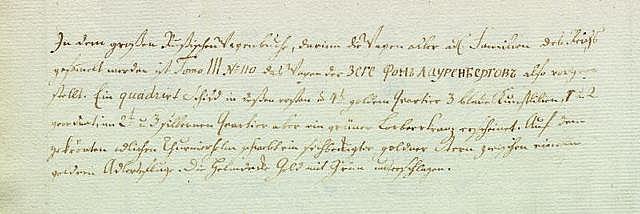 In dem großen Rußischen Wapenbuche, darinn die Wapen aller adl. Familien des Reichs
gesammelt werden ist Tomo III № 110 das Wapen der Зеге Фонъ Лауренберговъ also vorge
stellt. Ein quadrirt Schild in deßen ersten u 4t. goldenen Quartier 3 blaue 1 u 2
geordnet im 2t. u 3 silbernen Quartier aber ein grüner Lorbeerkranz erscheinet. Auf dem
gekrönten adlichen Thurnierhelm schwebt ein sechseckigter goldner Stern zwischen einem
goldnen Adlersfluge. Die Helmdecke Gold mit Grün unterschlagen.